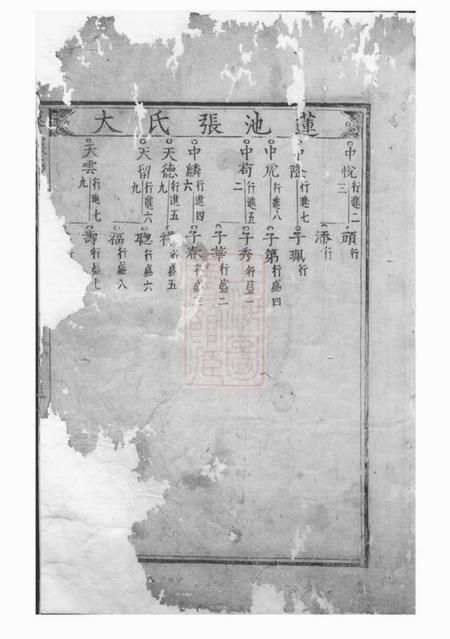 蓮池張氏大
中悅行進二
三
頭行
添行
中隆行進七
子珮行
中虎行進八
子第行盛四
中苟行進五
二
子秀行盛一
子華行盛二
中麟行進四
六
子春行盛三
天德行進五
九
行盛五
天留行進六
九
聰行盛六
福行盛八
天雲行進七
九
壽行盛七